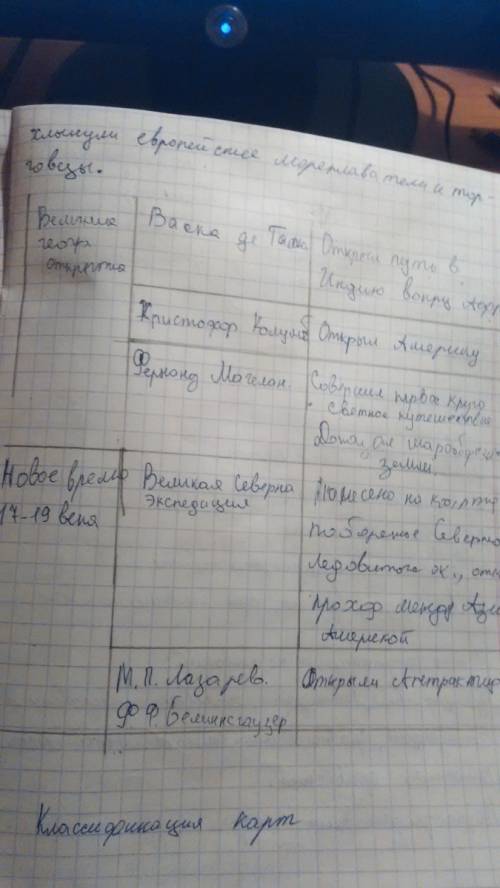 хлынули европейские мореплаватели и тор-
говцы.
Великие
геогр
открытия
Васка де Гама
Открыл путь в
Индию вокруг Афр
Кристофор Колумб
Открыл Америку
Фернанд Магелан.
Совершил первое круго
светное путешествие
Доказал шарообр
Земли.
Новое время
17-19 века
Великая Северна
экспедиция
Нанесено на карту
побережье Северно
Ледовитого ок., отк
проход между Ази
Америкой
М. П. Лазарев.
Ф Ф. Белинсгаузер
Открыли Антрактид
Классификация карт